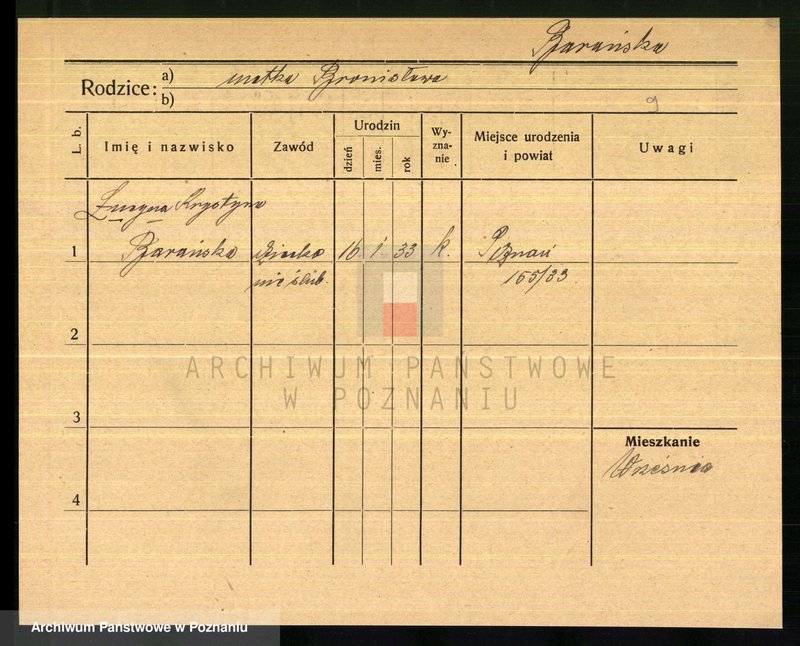 Barańska
Rodzice: a) matka Bronisława
b)
9
L. b. Imię i nazwisko Zawód Urodzin dzień mies. rok Wy-zna-nie Miejsce urodzenia i powiat Uwagi
Lucyna Krystyna
1 Barańska dziecko 16 1. 33 k. Poznań
nieślub. 155/33
2
ARCHIWUM PAŃSTWOWE
W POZNANIU
3
Mieszkanie
Września
4
Archiwum Państwowe w Poznaniu